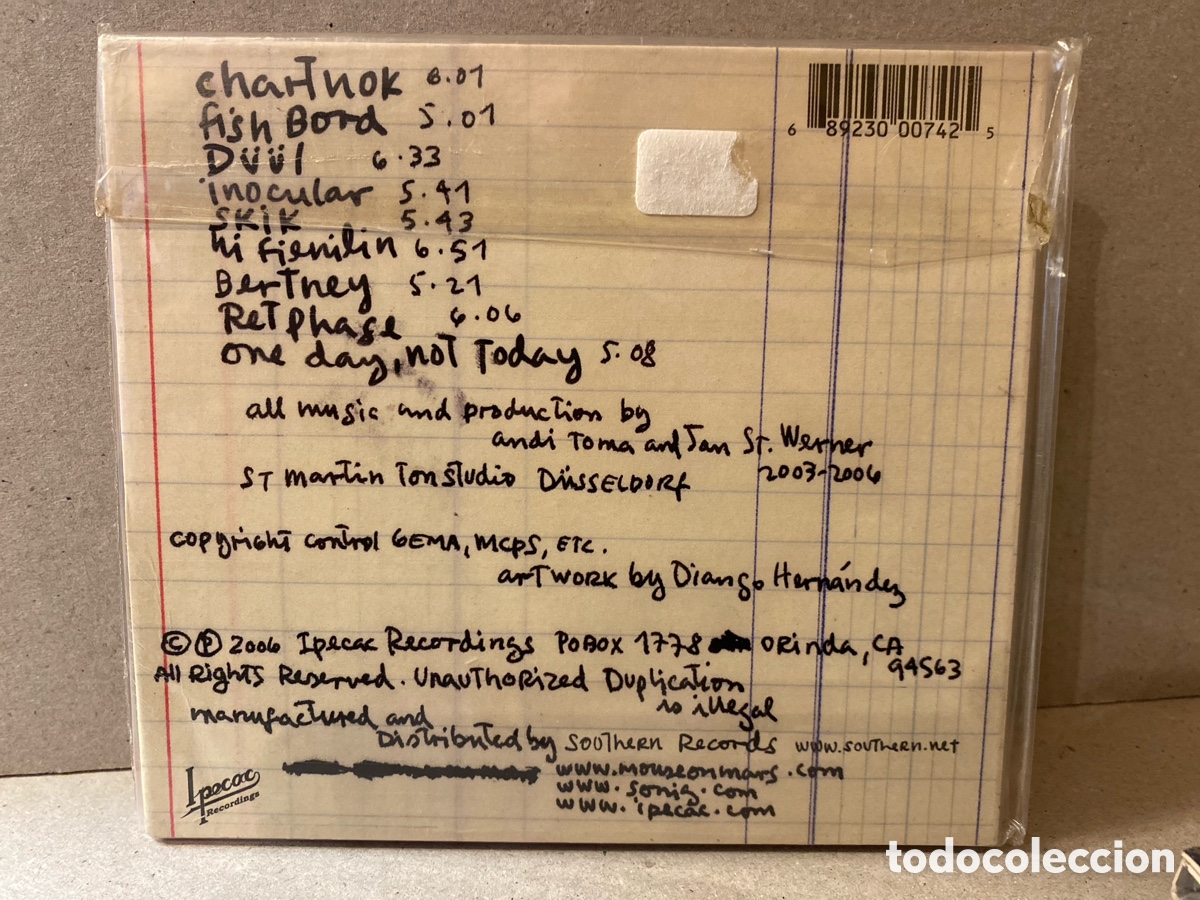 chartnok 6.01
6 89230 00742 5
fish Bord 5.01
Düül 6.33
inocular 5.41
SKiK 5.43
hi fienilin 6.51
Bertney 5.21
Retphase 6.06
one day, not Today 5.08
all music and production by
andi Toma and Jan St. Werner
ST martin Tonstudio DÜSSELDORF 2003-2006
copyright control GEMA, MCPS, ETC.
artwork by Diango Hernández
© ℗ 2006 Ipecac Recordings POBOX 1778 ORinda, CA
94563
All Rights Reserved. Unauthorized Duplication
is illegal
manufactured and
Distributed by Southern Records www.southern.net
www.mouseonmars.com
www.sonig.com
www.ipecac.com
Ipecac
Recordings
todocoleccion